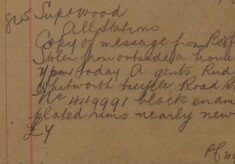 All Stations
Copy of message from
Stolen from outside a house
7pm today A gents Rud
Whitworth bicycle Road
No 449991 black enam
plated rims nearly new
£4